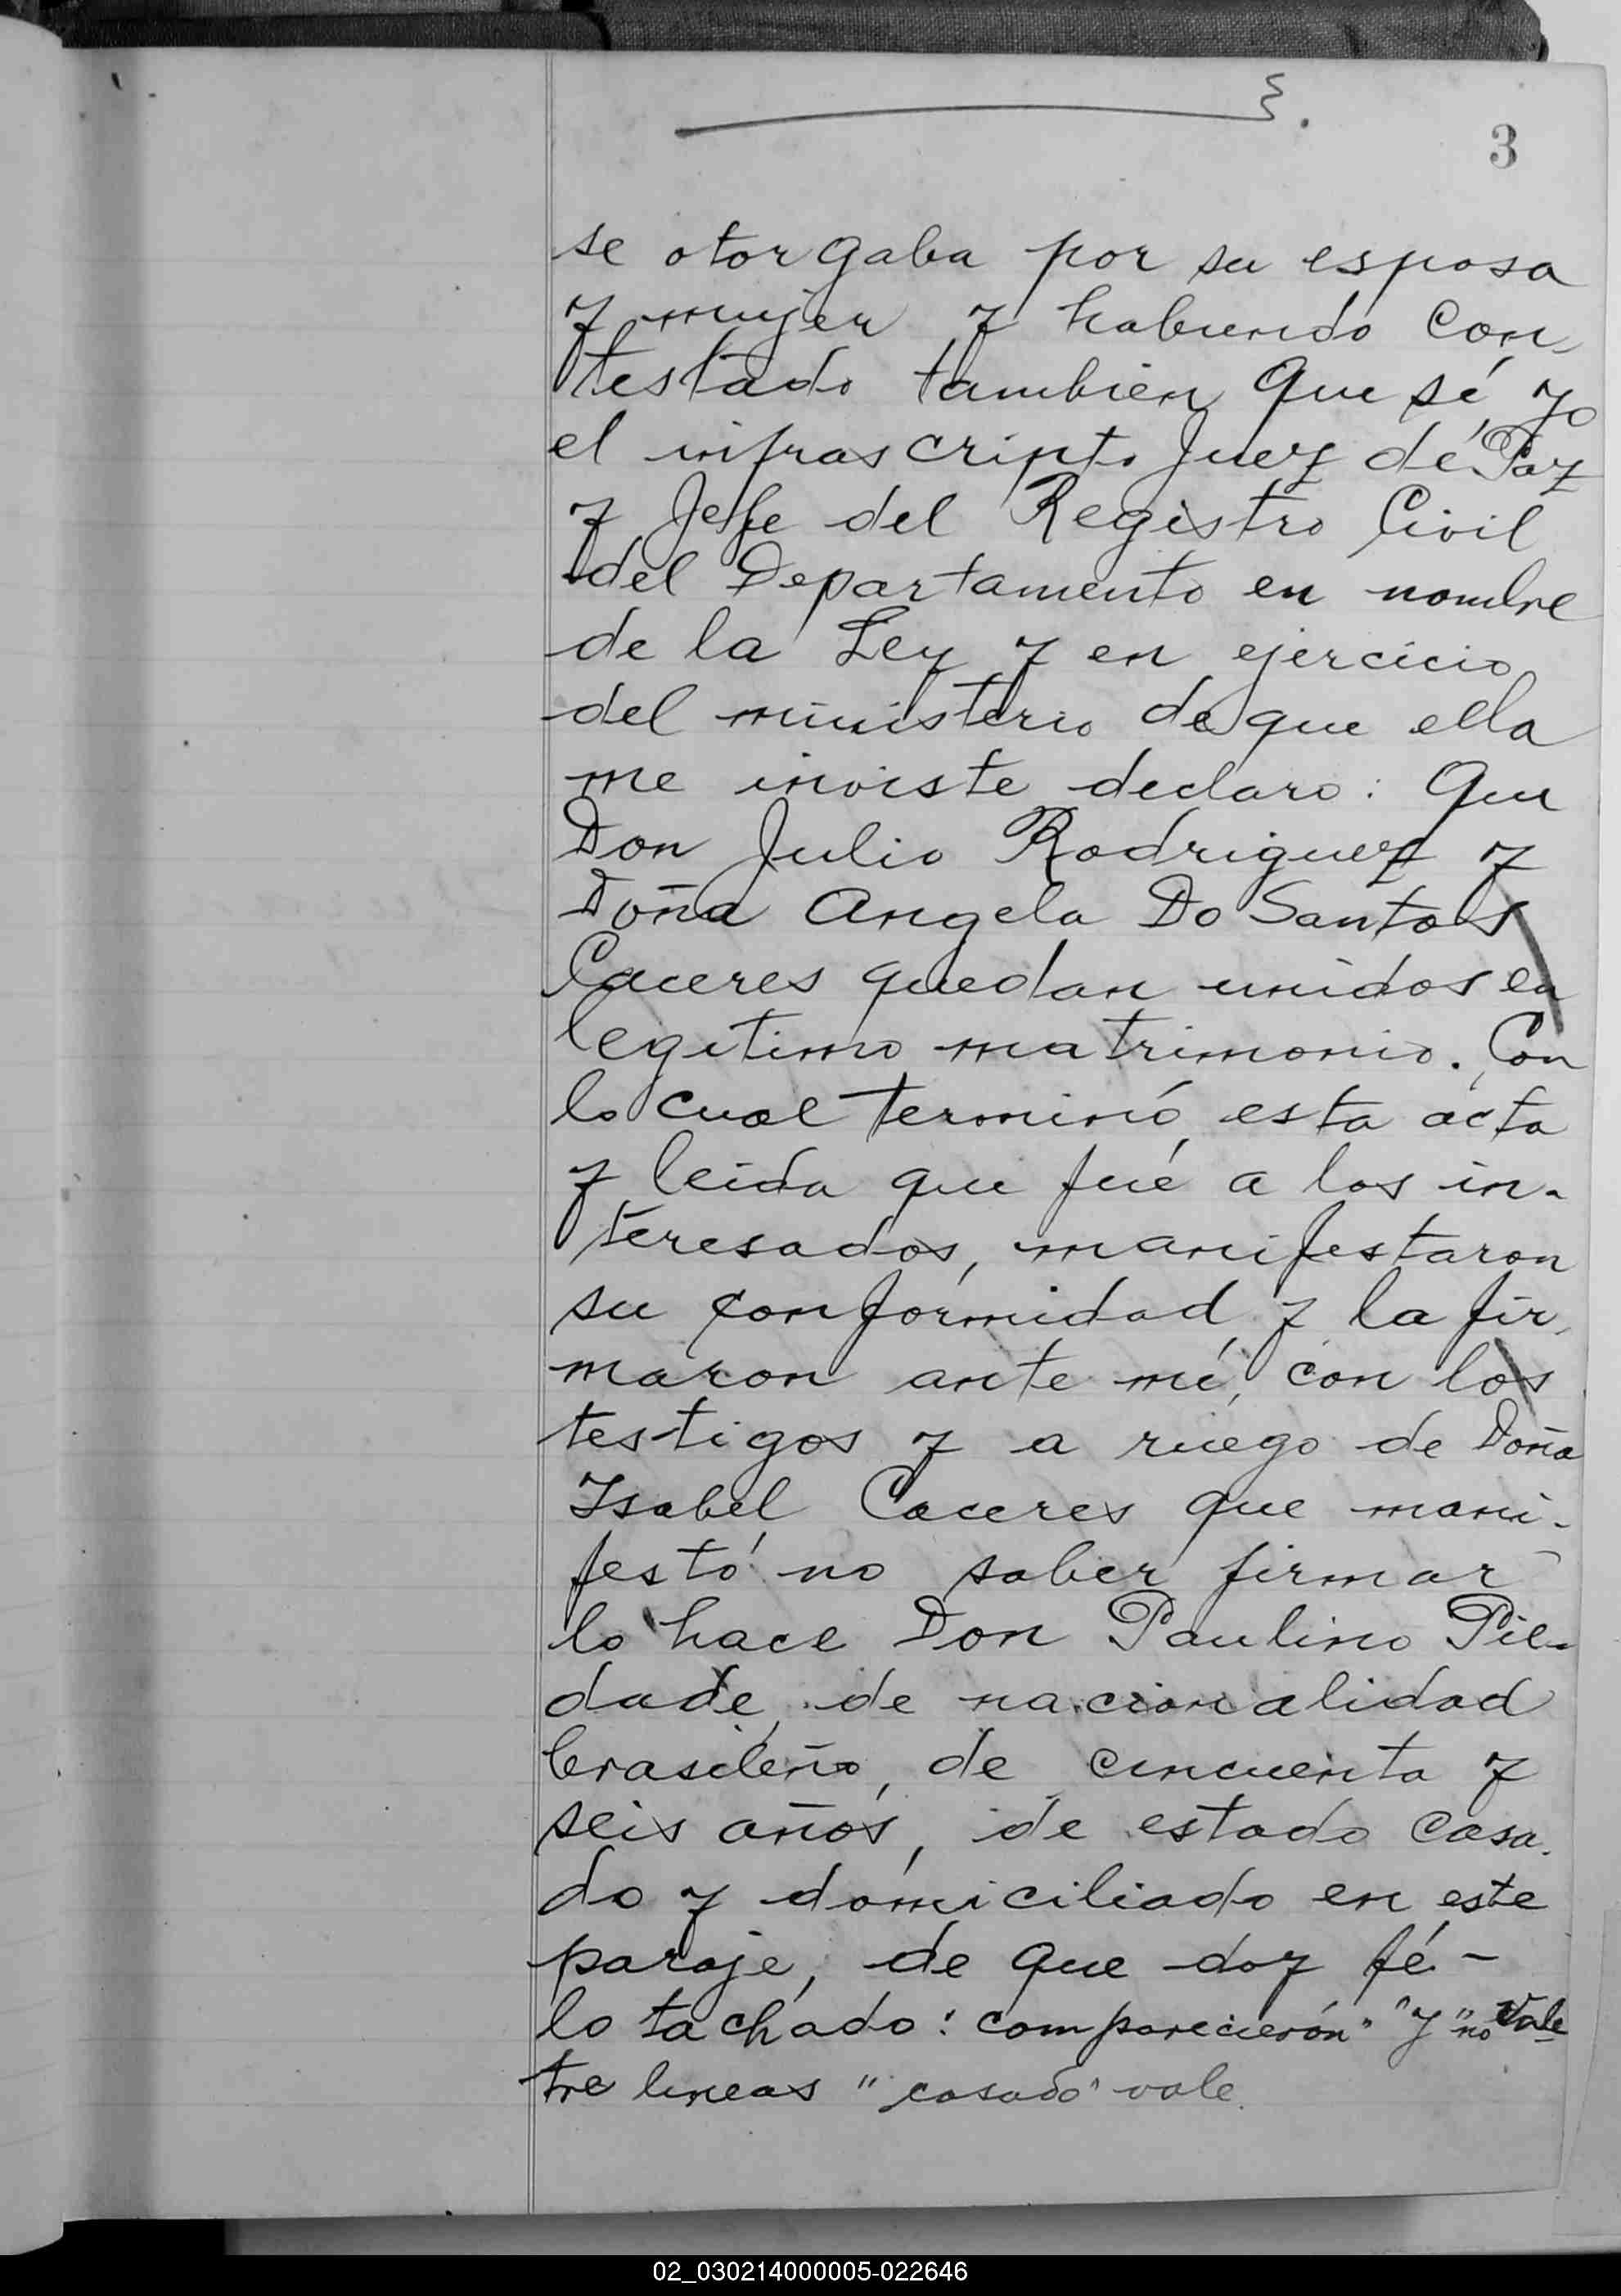 3
se otorgaba por su esposa
y mujer y habiendo con
testado tambien que sí, yo
el infrascripto Juez de Paz
y Jefe del Registro Civil
del Departamento en nombre
de la Ley y en ejercicio
del ministerio de que ella
me inviste declaro: Que
Don Julio Rodriguez y
Doña Angela Do Santos
Caceres quedan unidos en
legitimo matrimonio. Con
lo cual terminó esta acta
y leida que fué a los in-
teresados, manifestaron
su conformidad y la fir
maron ante mí, con los
testigos y a ruego de Doña
Isabel Caceres que mani-
festó no saber firmar
lo hace Don Paulino Pie-
dade, de nacionalidad
brasileño, de cincuenta y
seis años, de estado casa-
do y domiciliado en este
paraje, de que doy fé -
lo tachado: comparecierón" "y" no vale
tre lineas "casado" vale.
02_030214000005-022646